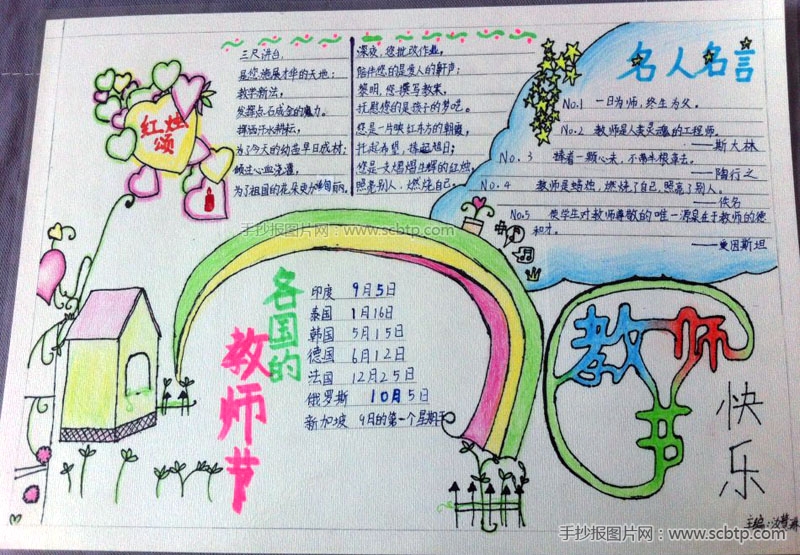 红烛
颂
三尺讲台,
是您施展才华的天地;
教学新法,
发挥点石成金的魔力。
挥语汗水耕耘,
为了今天的幼苗早日成材;
倾注心血浇灌,
为了祖国的花朵更加
深夜,您批改作业,
陪伴您的是爱人的鼾声;
黎明,您撰写教案,
托慰您的是孩子的梦呓。
您是一片映红东方的朝霞,
托起希望,捧起旭日;
您是一支熠熠生辉的红烛,
照亮别人,燃烧自己。
名人名言
No.1 一日为师,终生为父。
No.2 教师是人类灵魂的工程师。
——斯大林
No.3 捧着一颗心来,不带半根草去。
——陶行之
No.4 教师是蜡烛,燃烧了自己,照亮了别人。
——佚名
No.5 使学生对教师尊敬的唯一源泉在于教师的德
和才。
——爱因斯坦
手抄报图片网:www.scbtp.com
各国的
教师节
印度 9月5日
泰国 1月16日
韩国 5月15日
德国 6月12日
法国 12月25日
俄罗斯 10月5日
新加坡 9月的第一个星期天
教师
节
快乐
主编:
手抄报图片网:www.scbtp.com